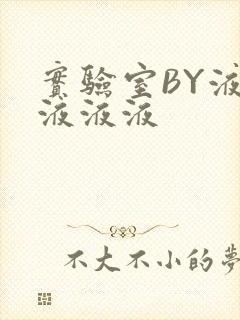 實驗室BY液
液液液
不大不小的夢